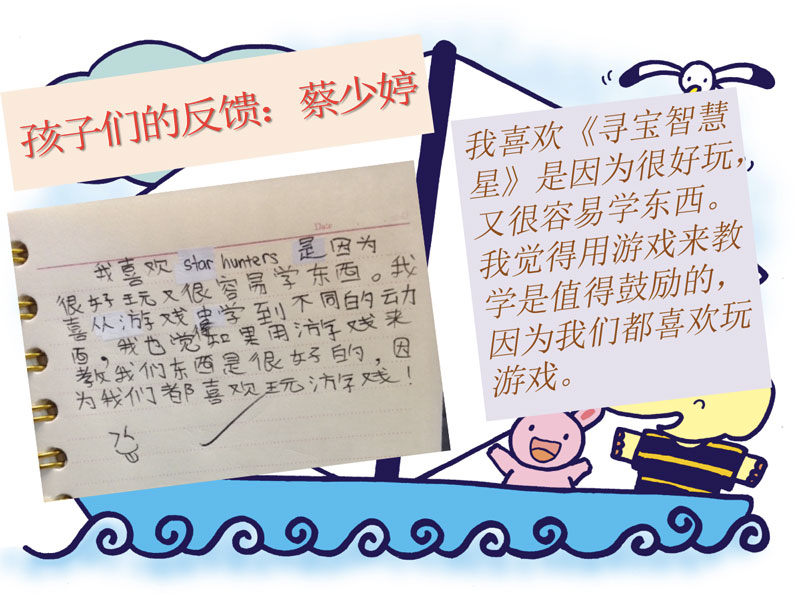 孩子们的反馈：蔡少婷
Date
我喜欢 star hunters 是因为
很好玩又很容易学东西。我
喜从游戏学到不同的动
西，我也觉如果用游戏来
教我们东西是很好的，因
为我们都喜欢玩游戏！
我喜欢《寻宝智慧
星》是因为很好玩，
又很容易学东西。
我觉得用游戏来教
学是值得鼓励的，
因为我们都喜欢玩
游戏。